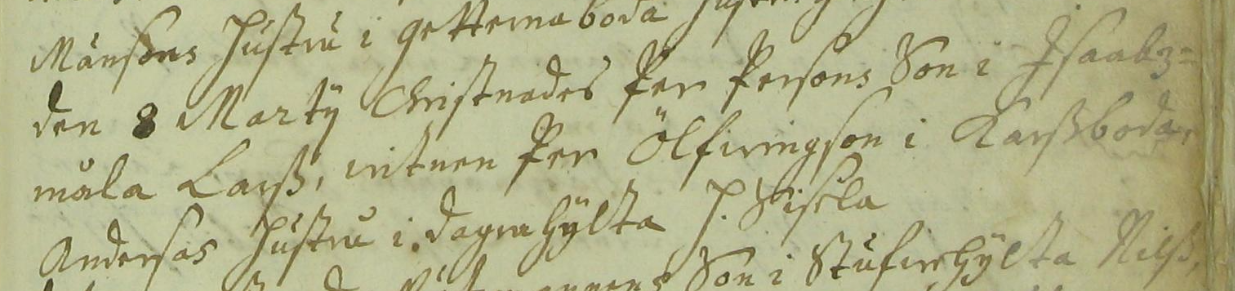 Månsons hustru i getternaboda
den 8 Martÿ Christnades Per Persons Son i Isaabz=
måla Larß, vitnen Per Ölfwingson i Karßboda,
Andersas hustru i dagrahÿlta P. Sissla
Son i Stufwehÿlta Nilß,